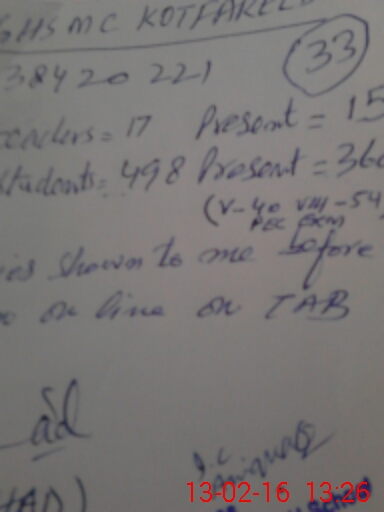 GHSMC KOTFAREED
33
38420221
Teachers = 17 Present = 15
Students = 498 Present = 360
(V-40 VIII-54
PEC EXM
ies shown to me before
on line on TAB
ad
13-02-16 13:26